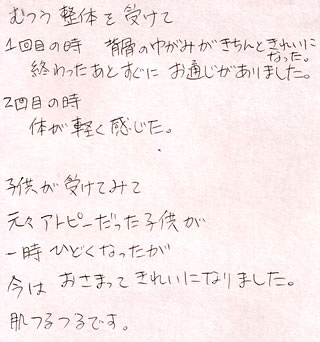 むつう整体を受けて
1回目の時 背骨のゆがみがきちんときれいに
なった。
終わったあとすぐに お通じがありました。
2回目の時
体が軽く感じた。
子供が受けてみて
元々アトピーだった子供が
一時ひどくなったが
今は おさまってきれいになりました。
肌つるつるです。